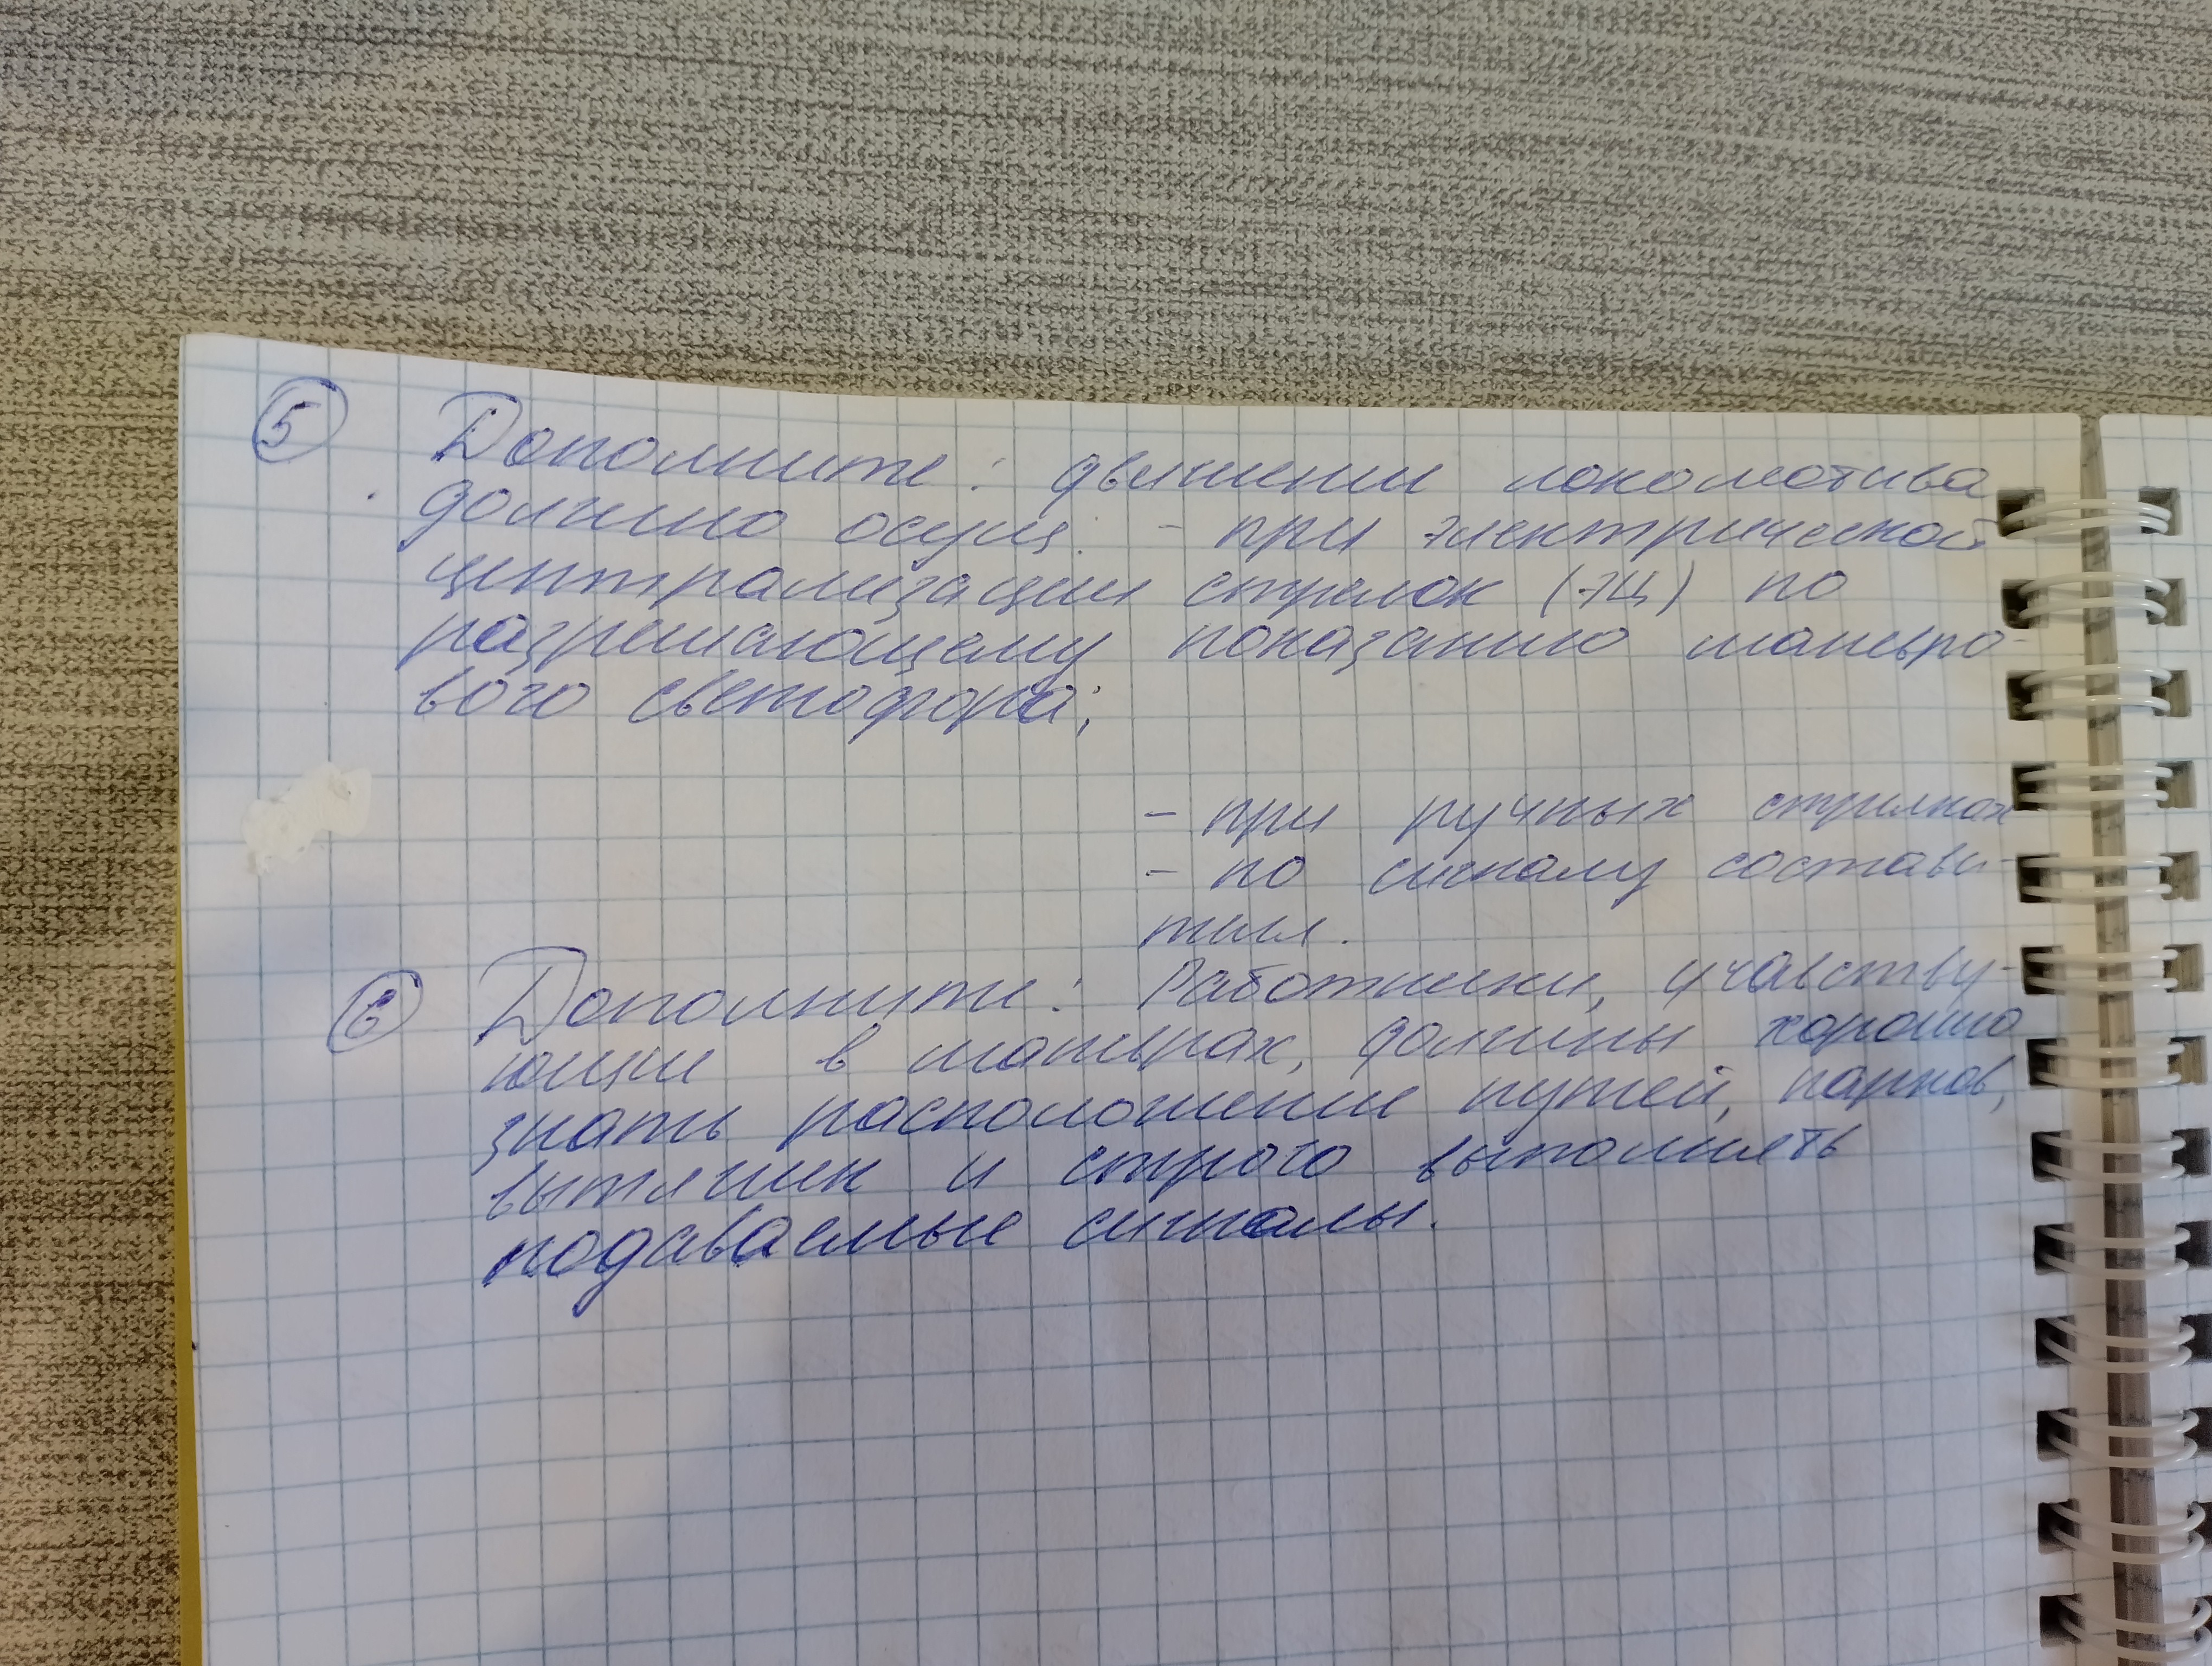 ⑤ Дополните: движении локомотива
должно осущ. - при электрической
централизации стрелок (ЭЦ) по
разрешающему показанию маневро-
вого светофора;
- при ручных стрелках
- по сигналу состави-
теля.
⑥ Дополните: Работники, участву-
ющие в маневрах, должны хорошо
знать расположение путей, парков,
вытяжек и строго выполнять
подаваемые сигналы.